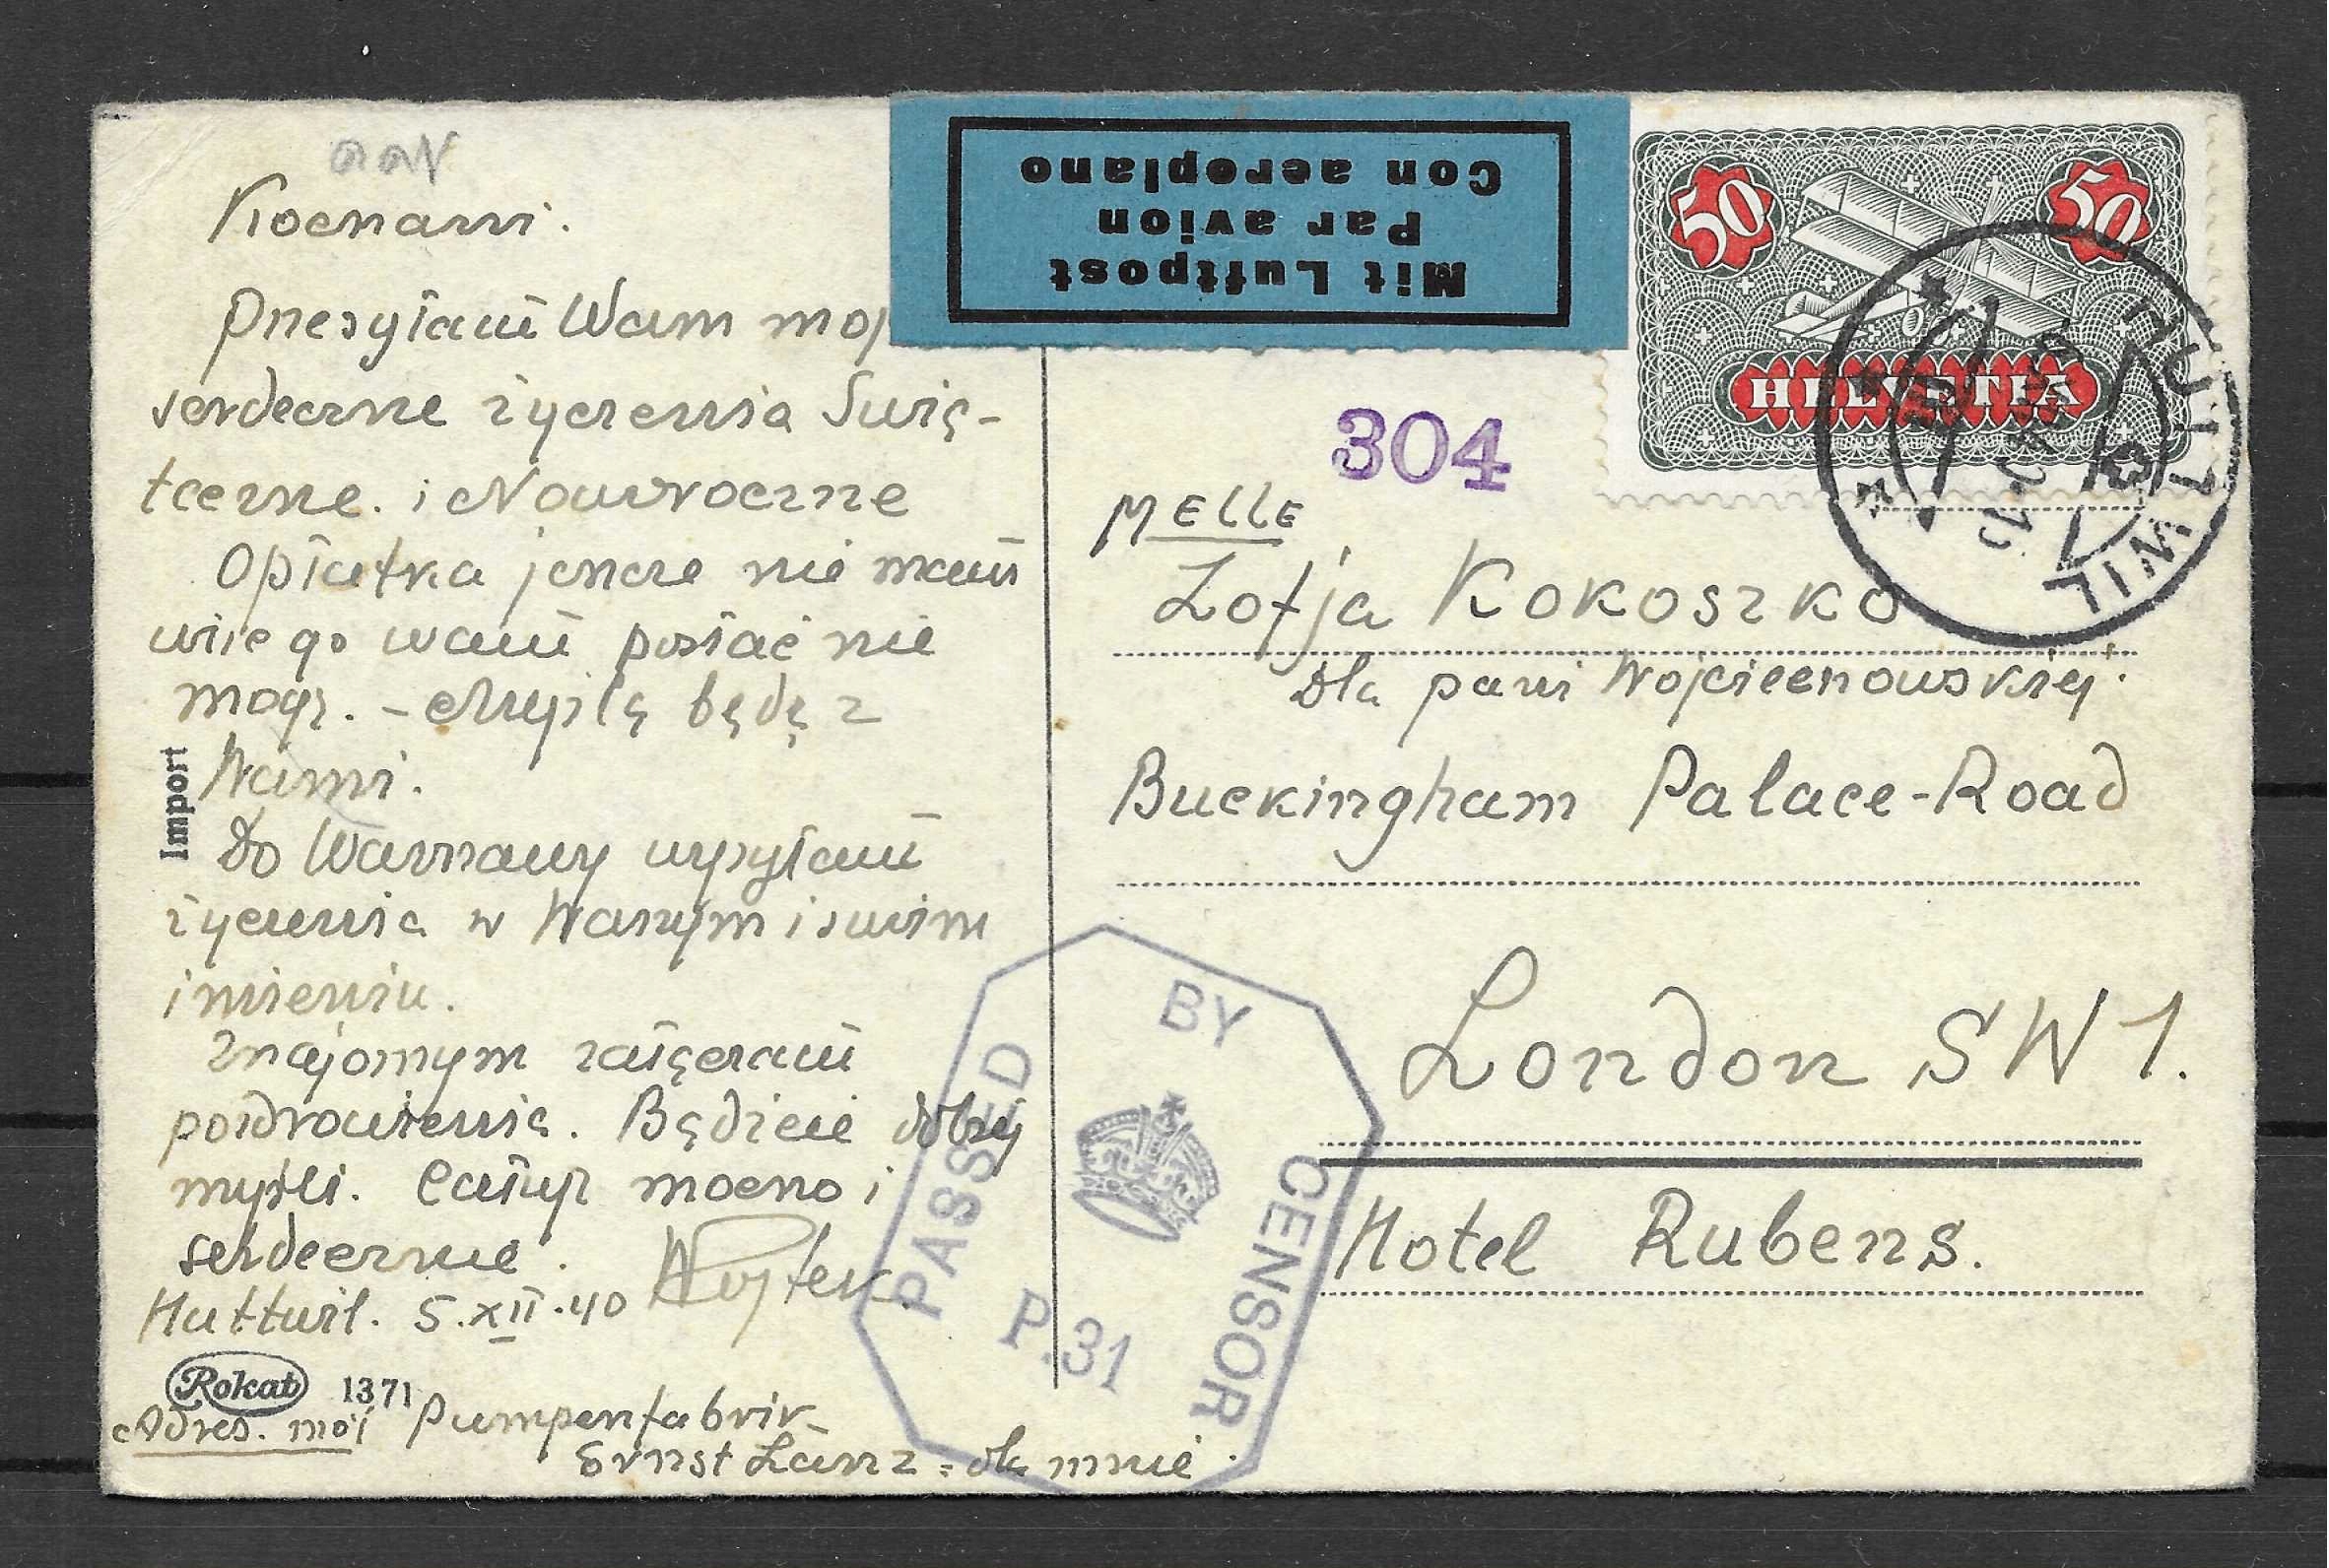 Kochani.
Przesyłam Wam moj
serdeczne życzenia Świą-
teczne. i Noworoczne
Opłatka jeszcze nie mam
więc go wam posłać nie
mogę. - Myślą będę z
Wami.
Do Warszawy wysyłam
życzenia w Waszym i swim
imieniu.
Znajomym załączam
pozdrowienia. Bądźcie dobrej
myśli. Całuję mocno i
serdecznie.
Wojtek
Huttwil. 5.XII.40
Import
Rokat 1371
Adres. mój Pumpenfabrik
Ernst Länz = dla mnie.
Mit Luftpost
Par avion
Con aeroplano
50 50
HELVETIA
HUTTWIL
304
MELLE
Zofja Kokoszko
dla pani Wojciechowskiej.
Buckingham Palace-Road
London SW 1.
Hotel Rubens.
PASSED BY CENSOR
P.31